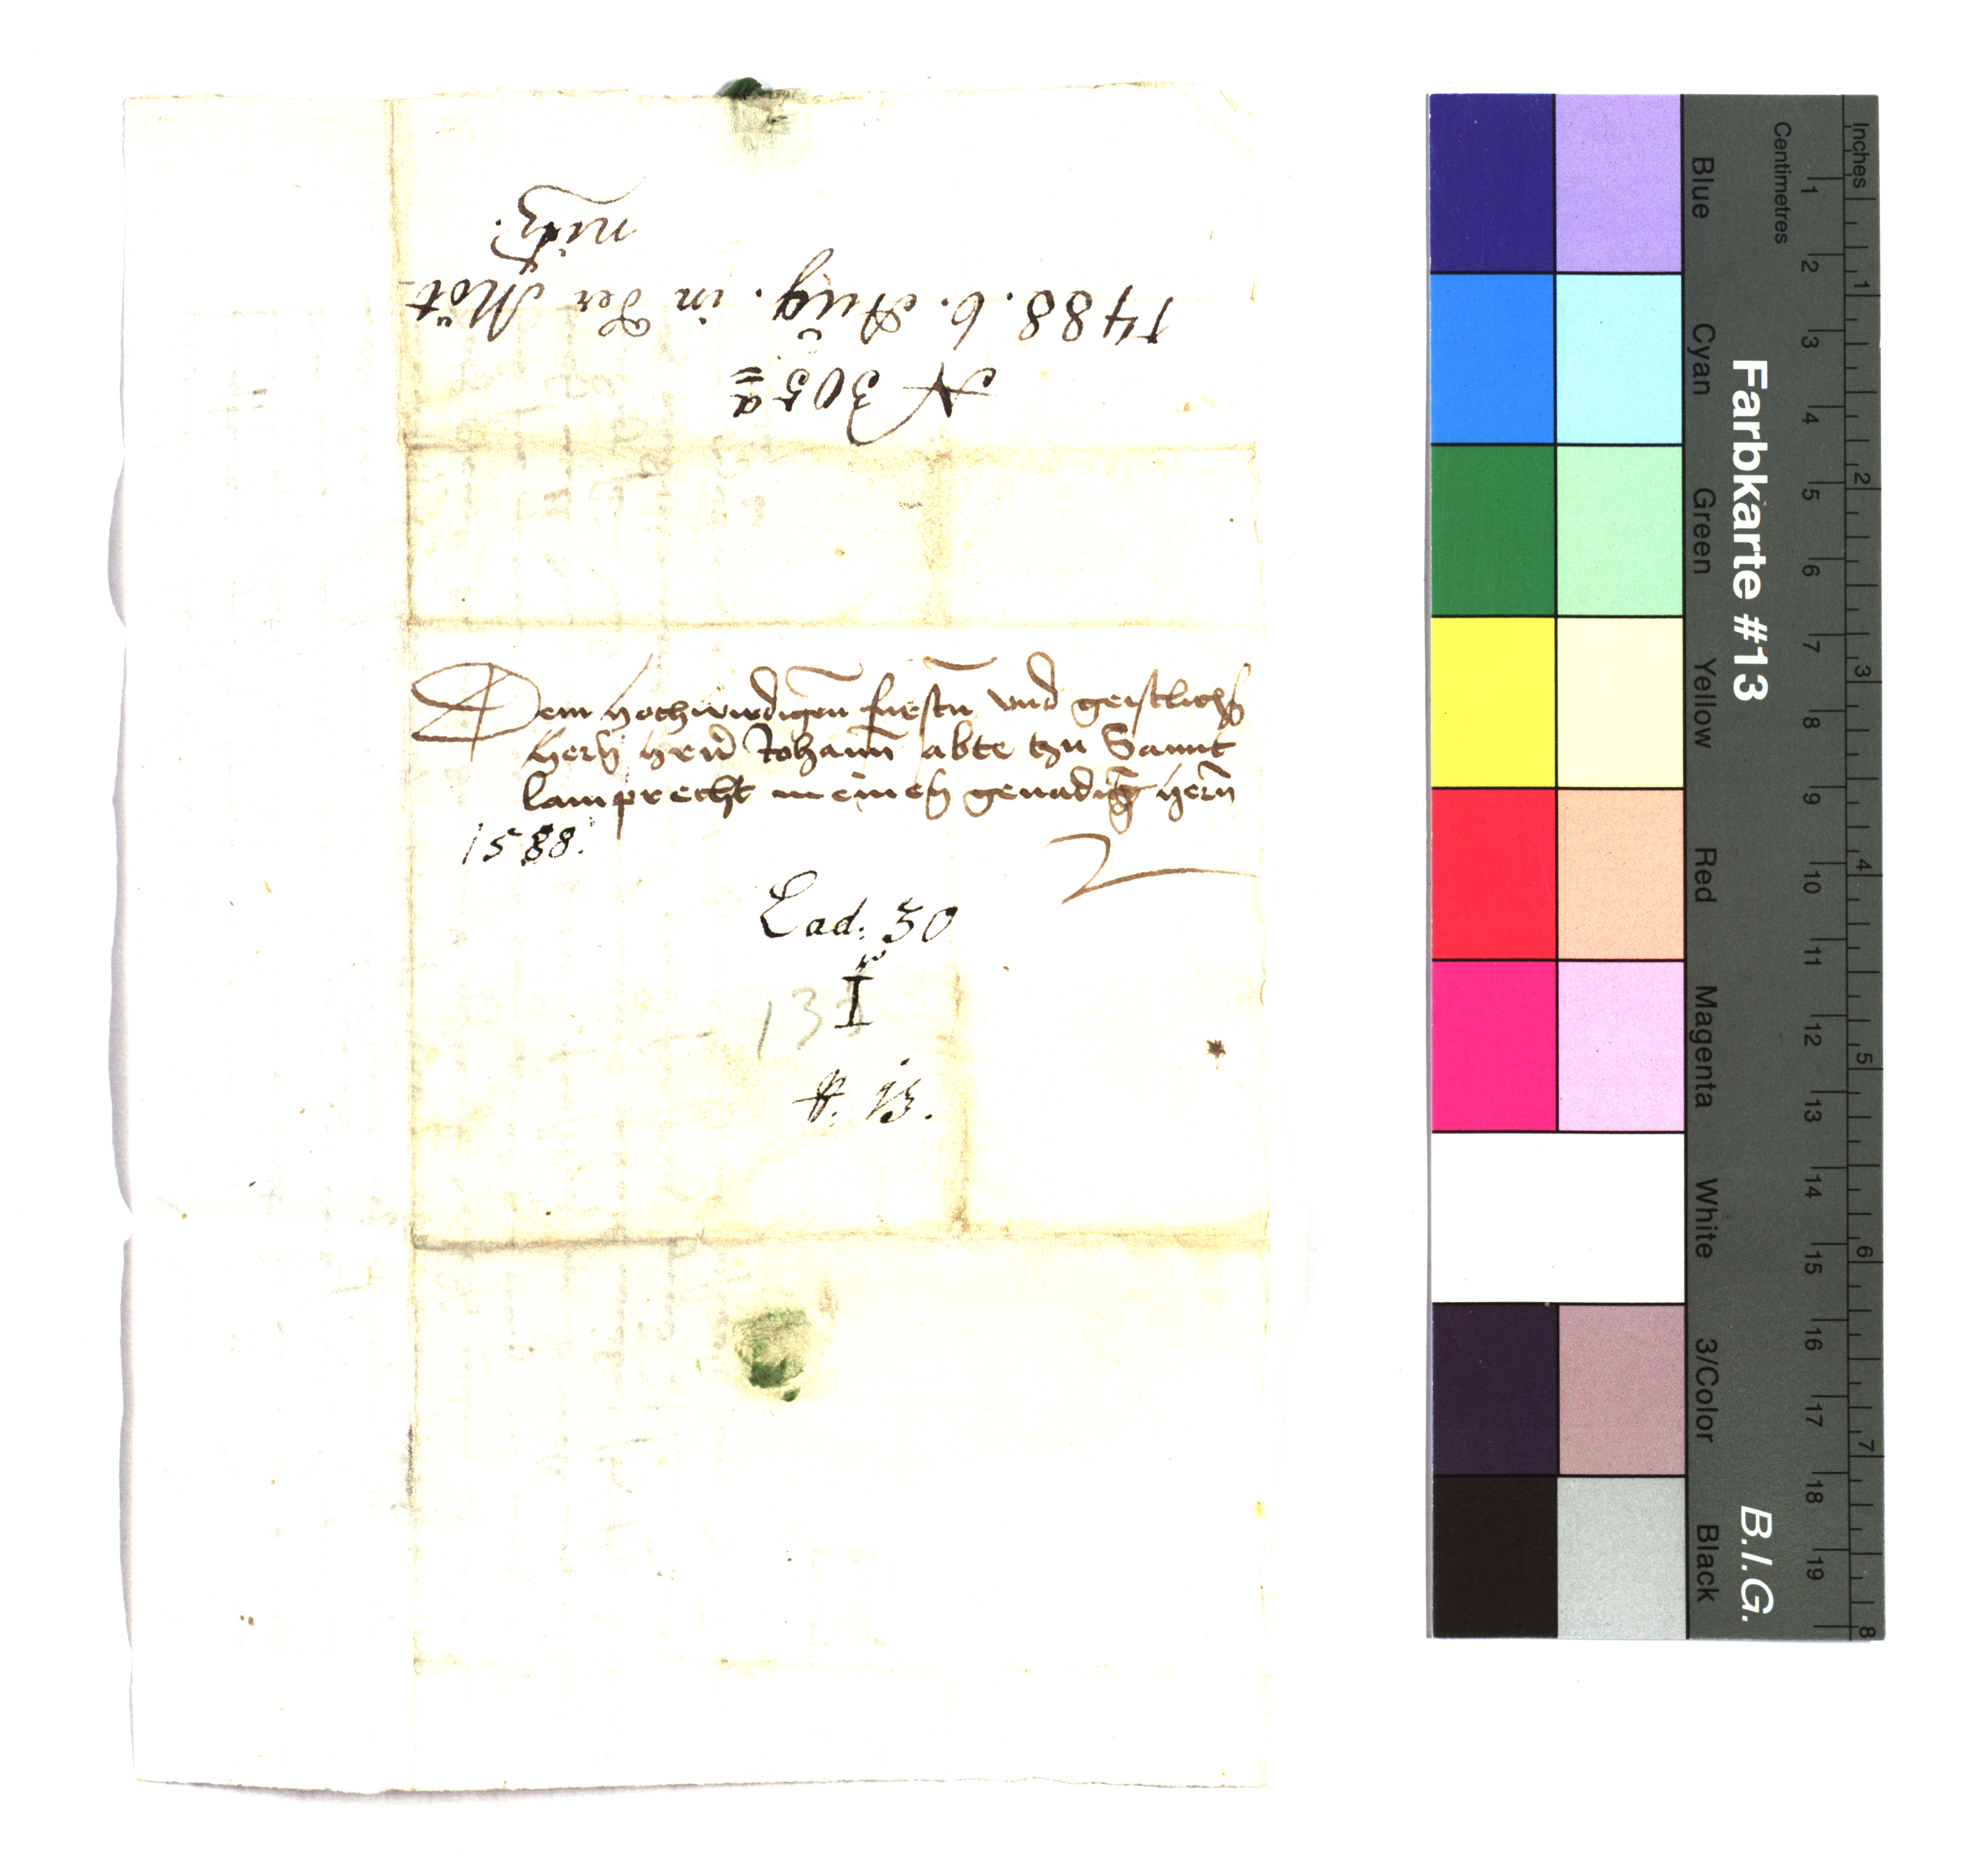 N 305a
1488. 6. Aug. in der Möt
nitz.
Dem hochwirdigen fürstn vnd geistlichn
hern hern Johann abte tzu Sannt
lamprecht meinen genadign hern
1588.
Lad. 50
I
13
N. 13.
Inches
Centimetres
1 2 3 4 5 6 7 8 9 10 11 12 13 14 15 16 17 18 19
1 2 3 4 5 6 7 8
Farbkarte #13
B.I.G.
Blue
Cyan
Green
Yellow
Red
Magenta
White
3/Color
Black